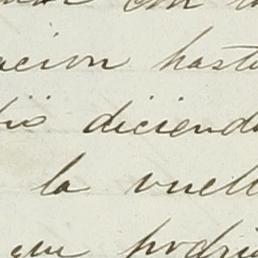 con
acion hasta
dió diciend
la vuelt
que podri